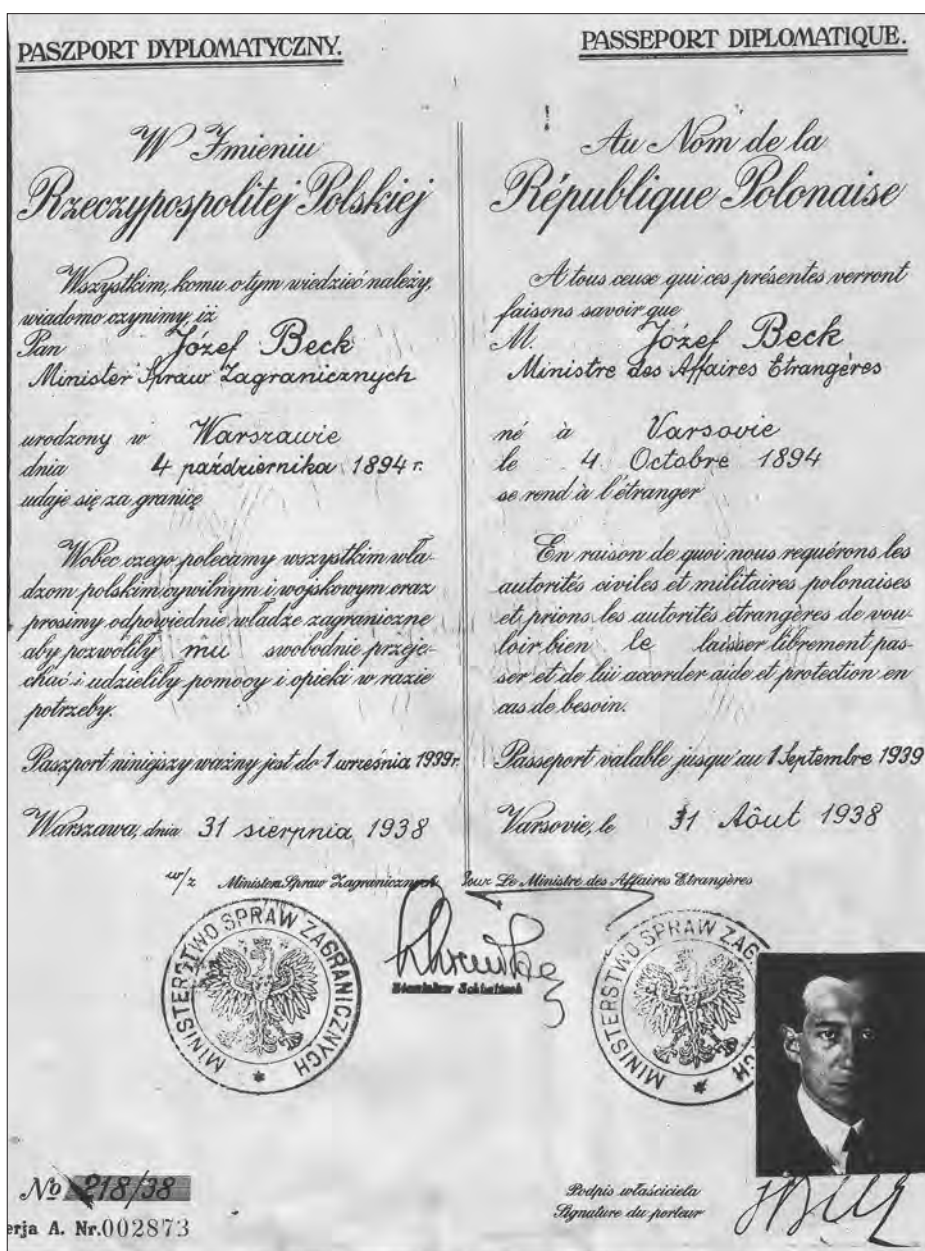 PASZPORT DYPLOMATYCZNY.
W Imieniu
Rzeczypospolitej Polskiej
Wszystkim, komu o tym wiedzieć należy,
wiadomo czynimy, iż
Pan Józef Beck
Minister Spraw Zagranicznych
urodzony w Warszawie
dnia 4 października 1894 r.
udaje się za granicę
Wobec czego polecamy wszystkim wła-
dzom polskim cywilnym i wojskowym oraz
prosimy odpowiednie władze zagraniczne
aby pozwoliły mu swobodnie przeje-
chać i udzieliły pomocy i opieki w razie
potrzeby.
Paszport niniejszy ważny jest do 1 września 1939 r.
Warszawa, dnia 31 sierpnia 1938
w/z Ministra Spraw Zagranicznych
MINISTERSTWO SPRAW ZAGRANICZNYCH
No 218/38
erja A. Nr. 002873
PASSEPORT DIPLOMATIQUE.
Au Nom de la
République Polonaise
A tous ceux qui ces présentes verront
faisons savoir que
M. Józef Beck
Ministre des Affaires Etrangères
né à Varsovie
le 4 Octobre 1894
se rend à l'étranger
En raison de quoi nous requérons les
autorités civiles et militaires polonaises
et prions les autorités étrangères de vou-
loir bien le laisser librement pas-
ser et de lui accorder aide et protection en
cas de besoin.
Passeport valable jusqu'au 1 Septembre 1939
Varsovie, le 31 Aôut 1938
Pour Le Ministre des Affaires Etrangères
MINISTERSTWO SPRAW ZAG
Podpis właściciela
Signature du porteur